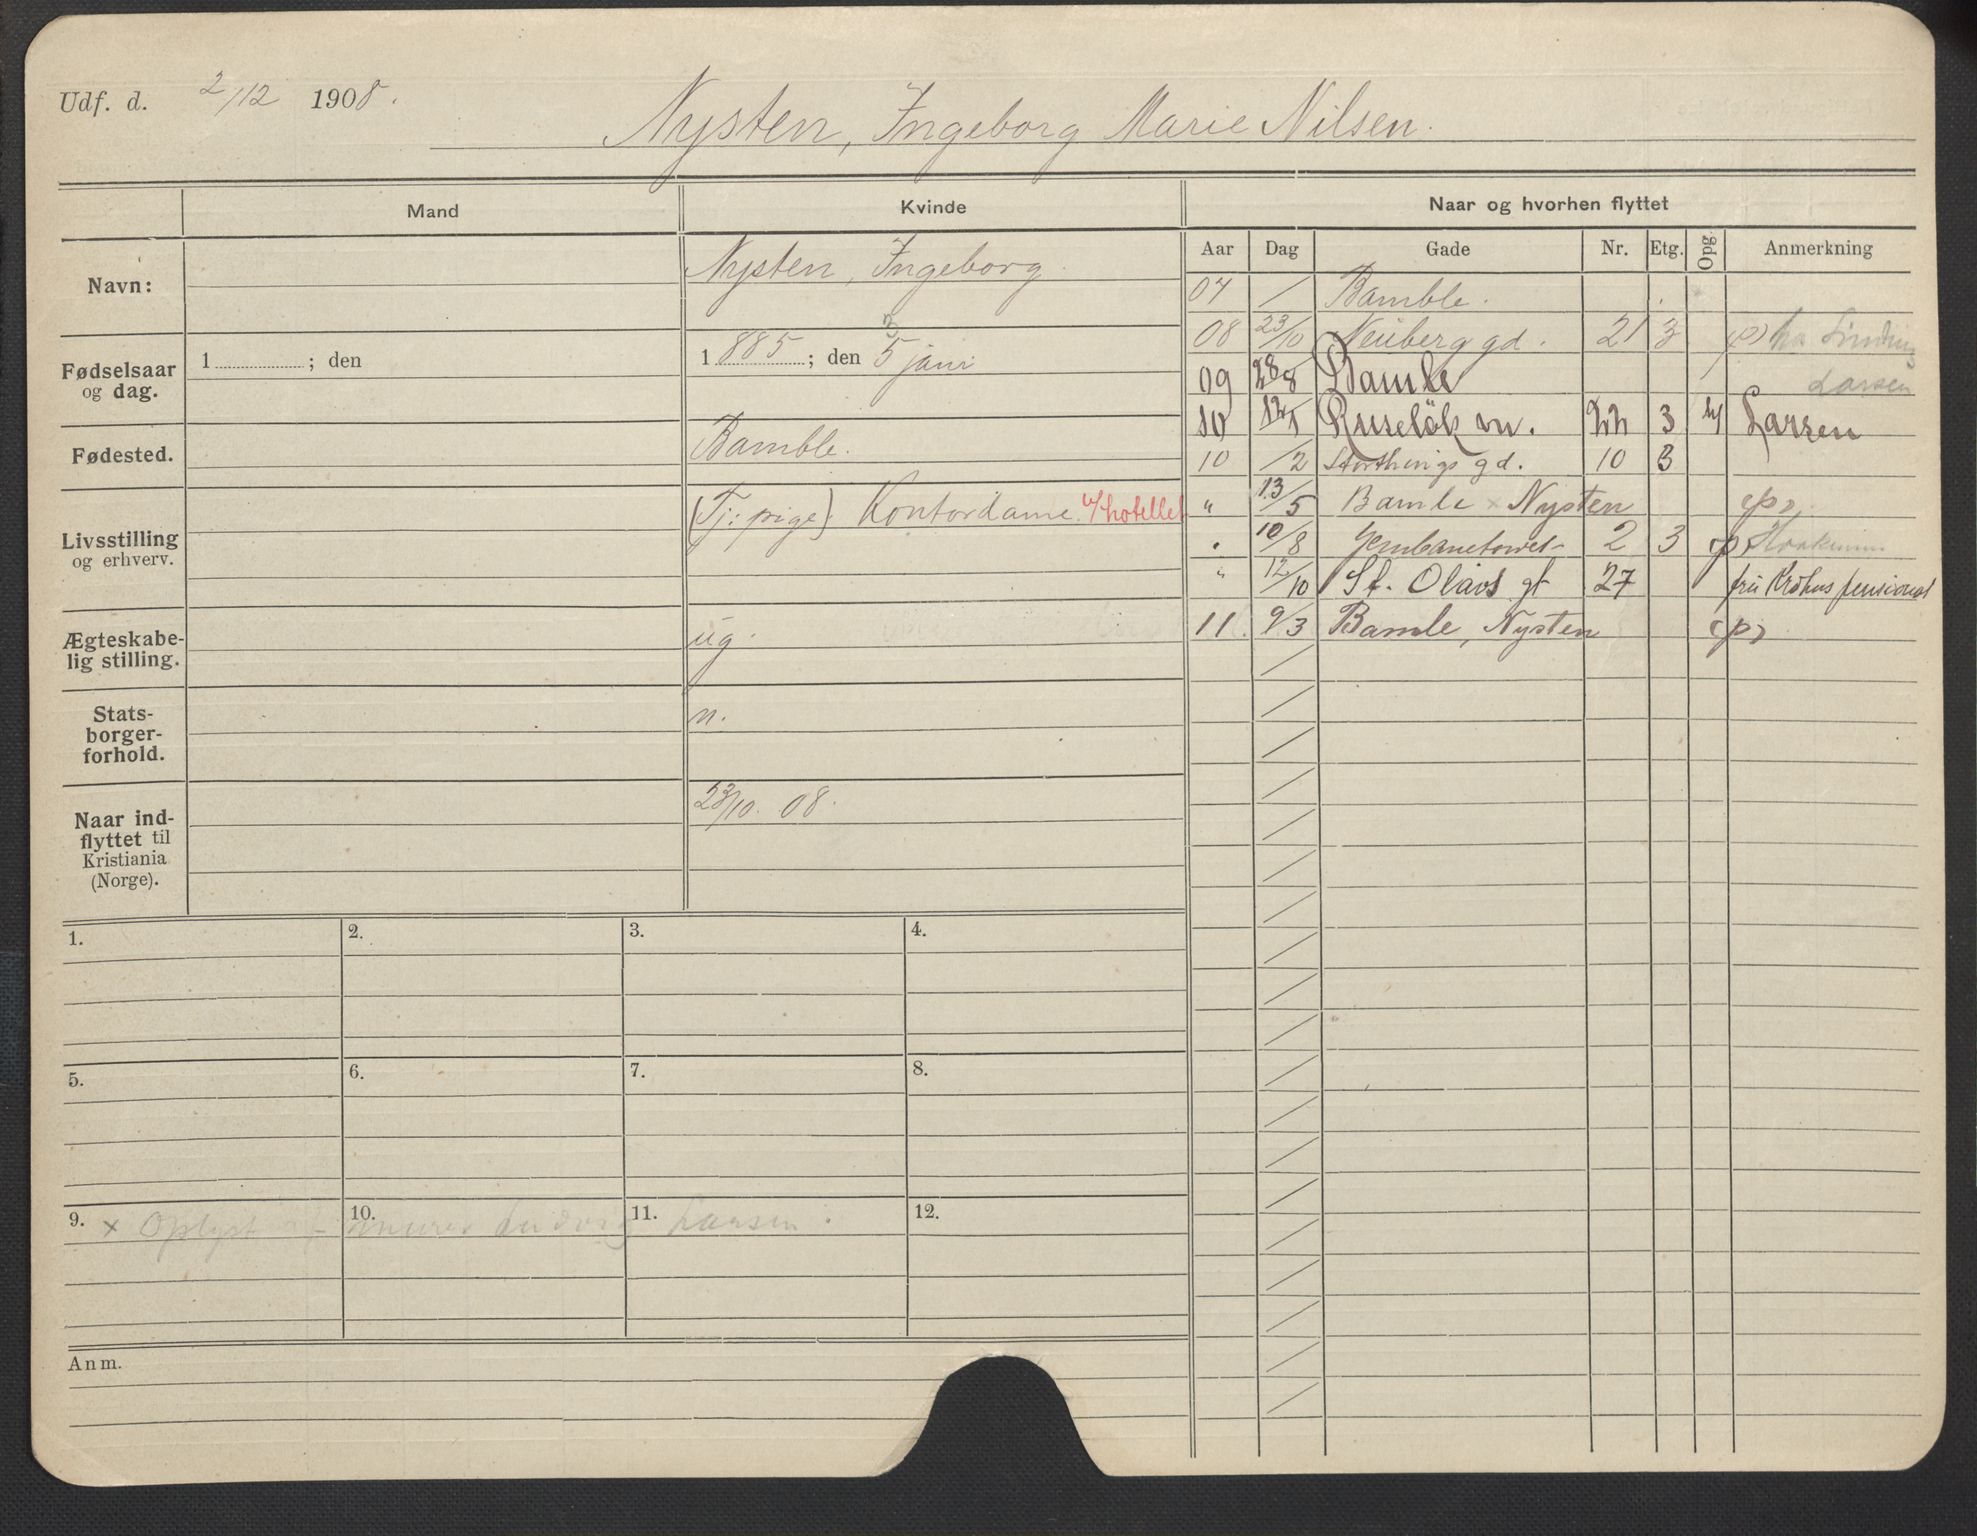 Udf. d. 2/12 1908.
Nysten, Ingeborg Marie Nilsen.
Mand
Kvinde
Naar og hvorhen flyttet
Aar Dag Gade Nr. Etg. Opg. Anmerkning
Navn:
Nysten, Ingeborg.
Fødselsaar og dag.
1 ; den
1885 ; den 5 juni
3
Fødested.
Bamble.
Livsstilling og erhverv.
(Tj: pige) Kontordame v/hotellet
Ægteskabe-
lig stilling.
ug.
Stats-
borger-
forhold.
n.
Naar ind-
flyttet til
Kristiania
(Norge).
23/10. 08.
07 / Bamble.
08 23/10 Neuberg gd. 21 3 (p) hos
Larsen
09 28/8 Bamle
10 12/1 Ruseløk vn. 22 3 Larsen
10 /2 Storthings gd. 10 3
" 13/5 Bamle x Nysten (p)
" 10/8 2 3
" 12/10 St. Olavs gt 27 fru Krohns pensionat
11. 9/3 Bamle, Nysten (p)
1. 2. 3. 4.
5. 6. 7. 8.
9. 10. 11. 12.
x Oplyst af murer Ludvig Larsen.
Anm.